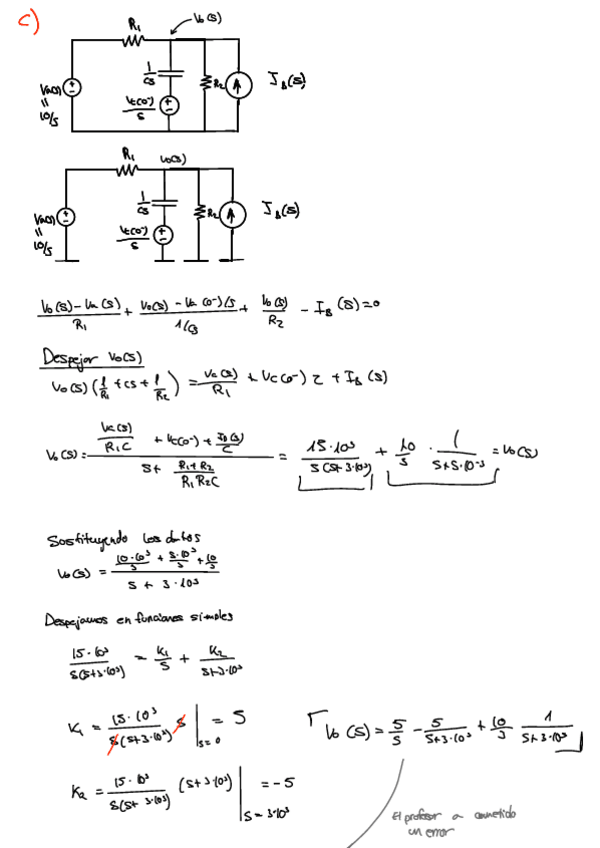 c)
R₁
V₀(s)
1/cs
R₂
I_B(s)
Va(s)
=
10/s
Vc(0⁻)/s
R₁
V₀(s)
1/cs
R₂
I_B(s)
Va(s)
=
10/s
Vc(0⁻)/s
(V₀(s) - Va(s))/R₁ + (V₀(s) - Va(0⁻)/s)/(1/Cs) + V₀(s)/R₂ - I_B(s) = 0
Despejar V₀(s)
V₀(s) (1/R₁ + cs + 1/R₂) = Va(s)/R₁ + Vc(0⁻) z + I_B(s)
V₀(s) = (Va(s)/(R₁C) + Vc(0⁻) + I_B(s)/C)/(s + (R₁+R₂)/(R₁R₂C)) = 15·10³/(s(s+3·10³)) + 10/s · 1/(s+s·10⁻³) = V₀(s)
Sostituyendo los datos
V₀(s) = (10·10³/s + 5·10³/s + 10/s)/(s + 3·10³)
Despejamos en funciones simples
15·10³/(s(s+3·10³)) = K₁/s + K₂/(s+3·10³)
K₁ = 15·10³/(s(s+3·10³)) s | s=0 = 5
K₂ = 15·10³/(s(s+3·10³)) (s+3·10³) | s=3·10³ = -5
V₀(s) = 5/s - 5/(s+3·10³) + 10/3 · 1/(s+3·10³)
El profesor a cometido
un error